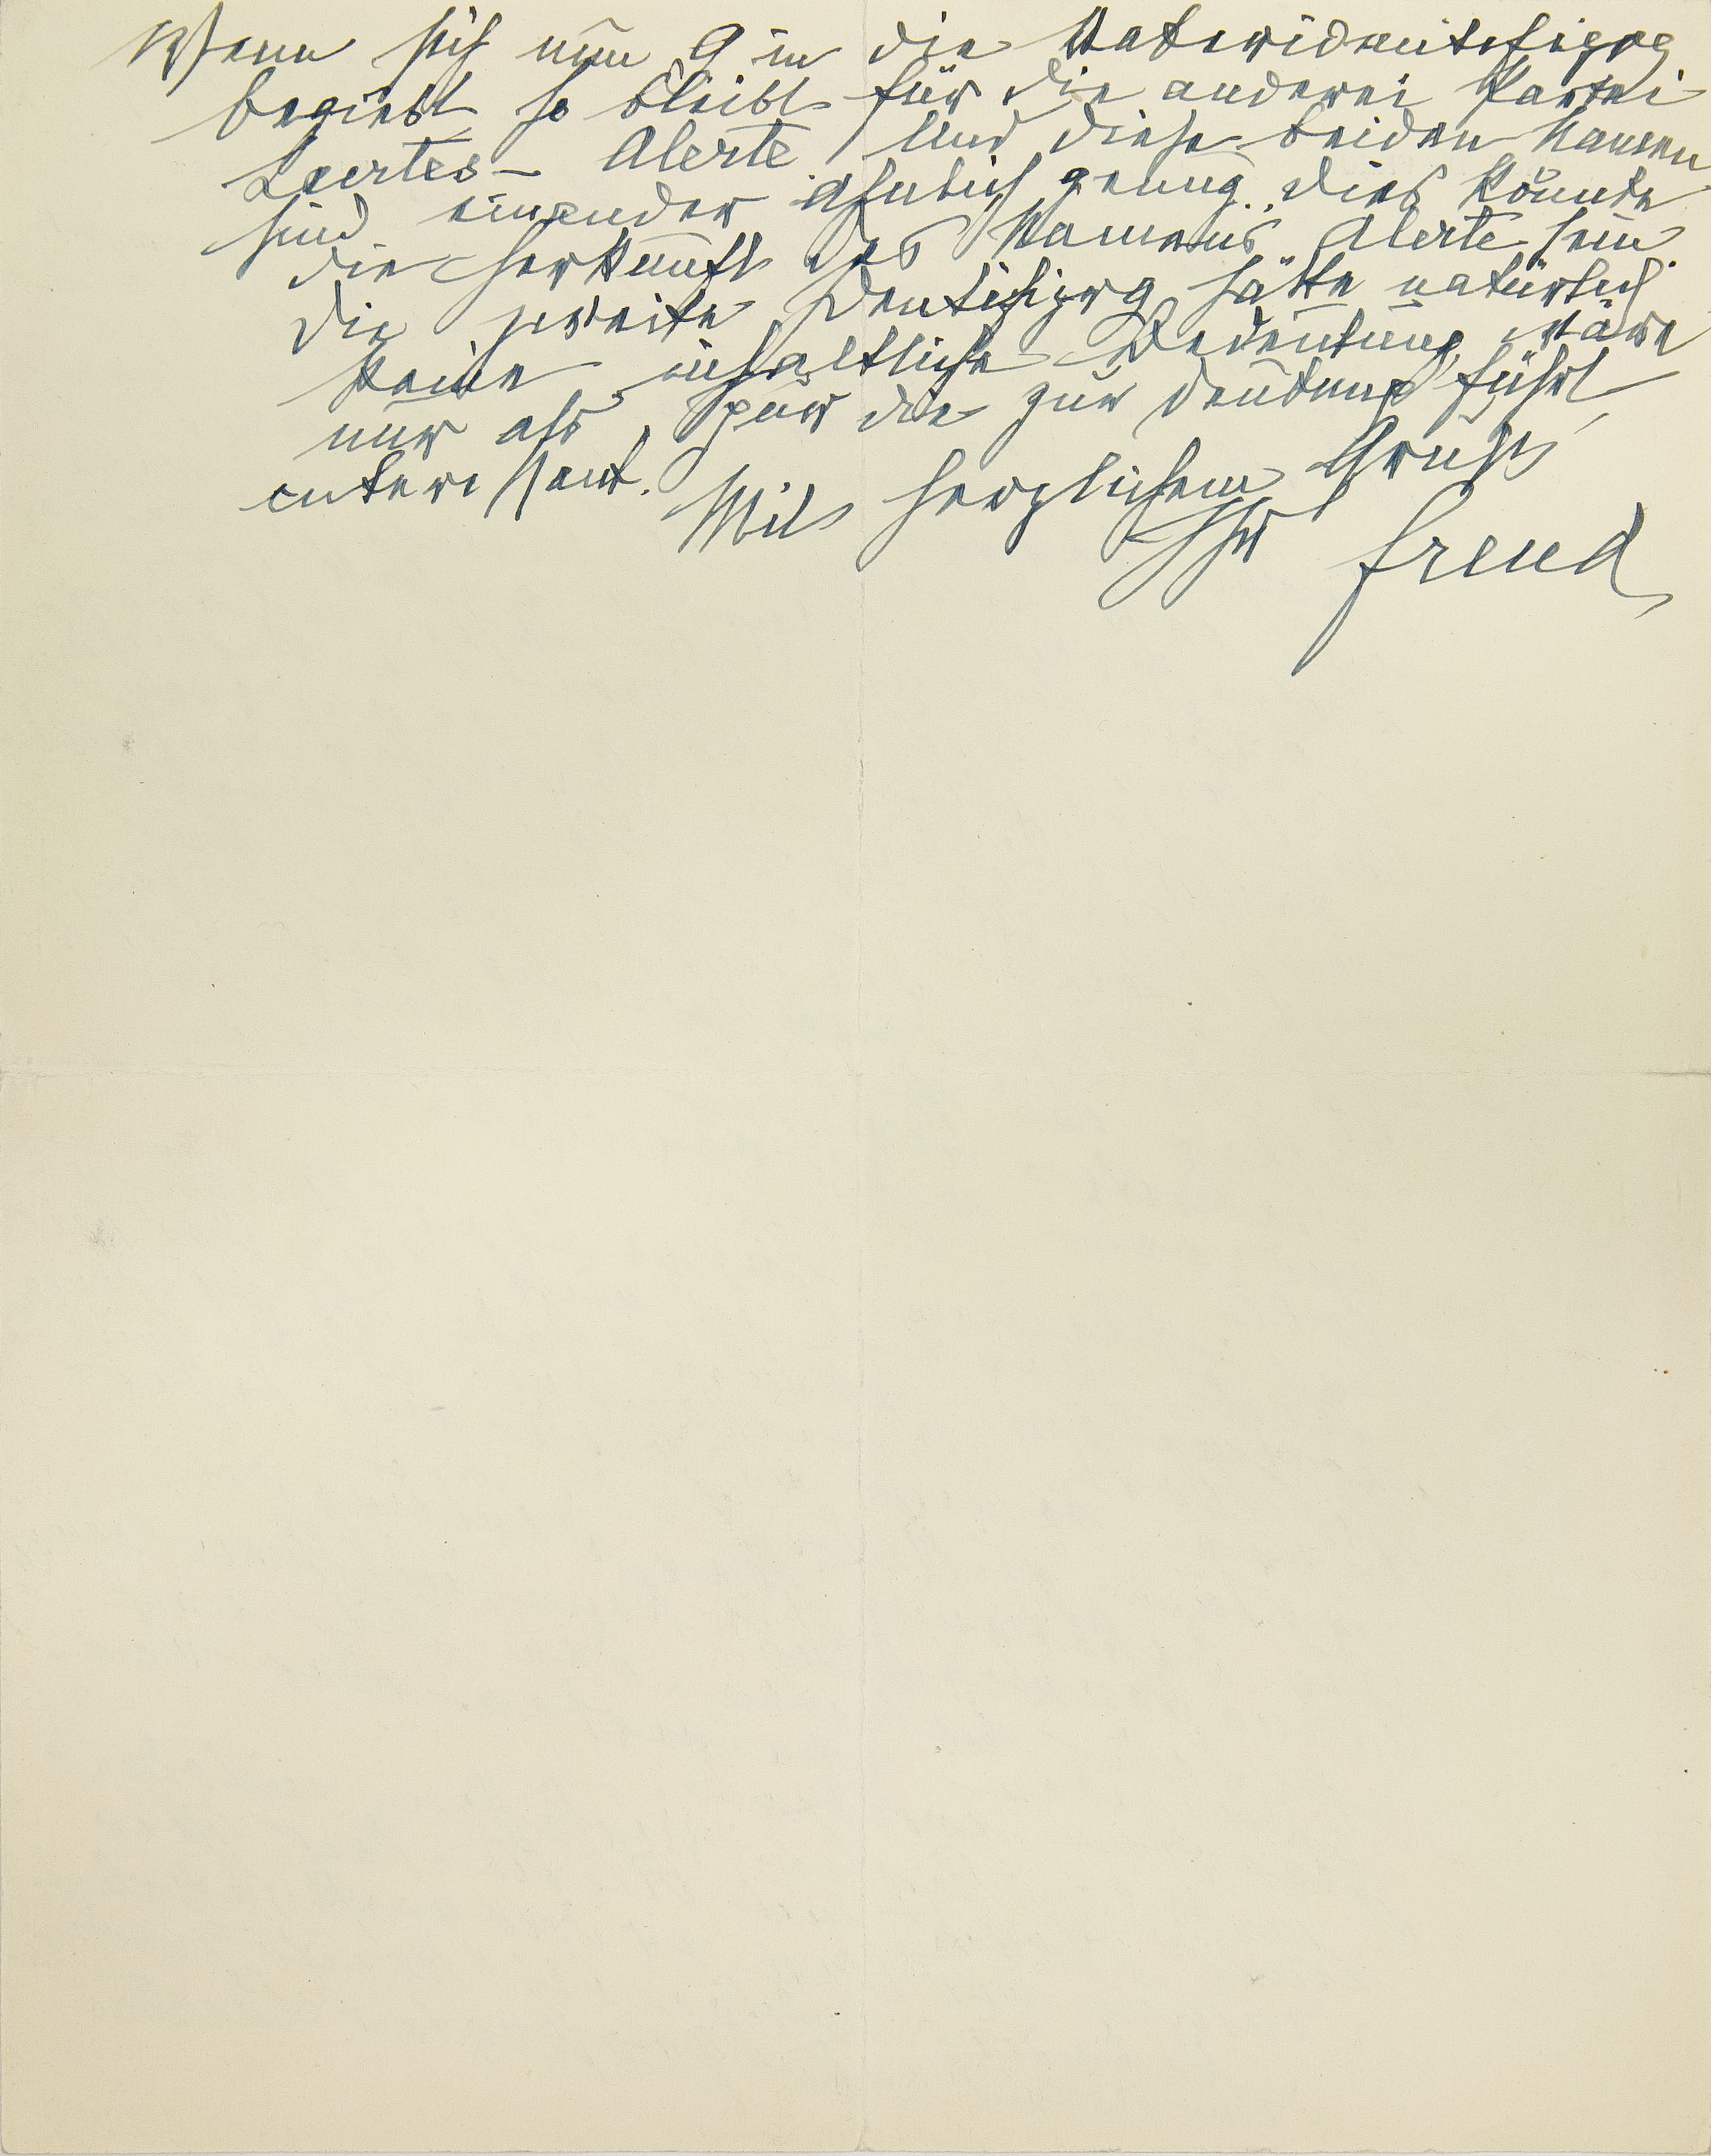 Wenn sich nun G in die Vateridentifizrg
begiebt so bleibt für die andere Partei
Laertes – Alerte. Und diese beiden Namen
sind einander ähnlich genug. Dies könnte
die Herkunft des Namens Alerte sein.
Die zweite Identifizrg hätte natürlich
keine inhaltliche Bedeutung, wäre
nur als Spur die zur Deutung führt,
interessant.
Mit herzlichem Gruß
Ihr Freud